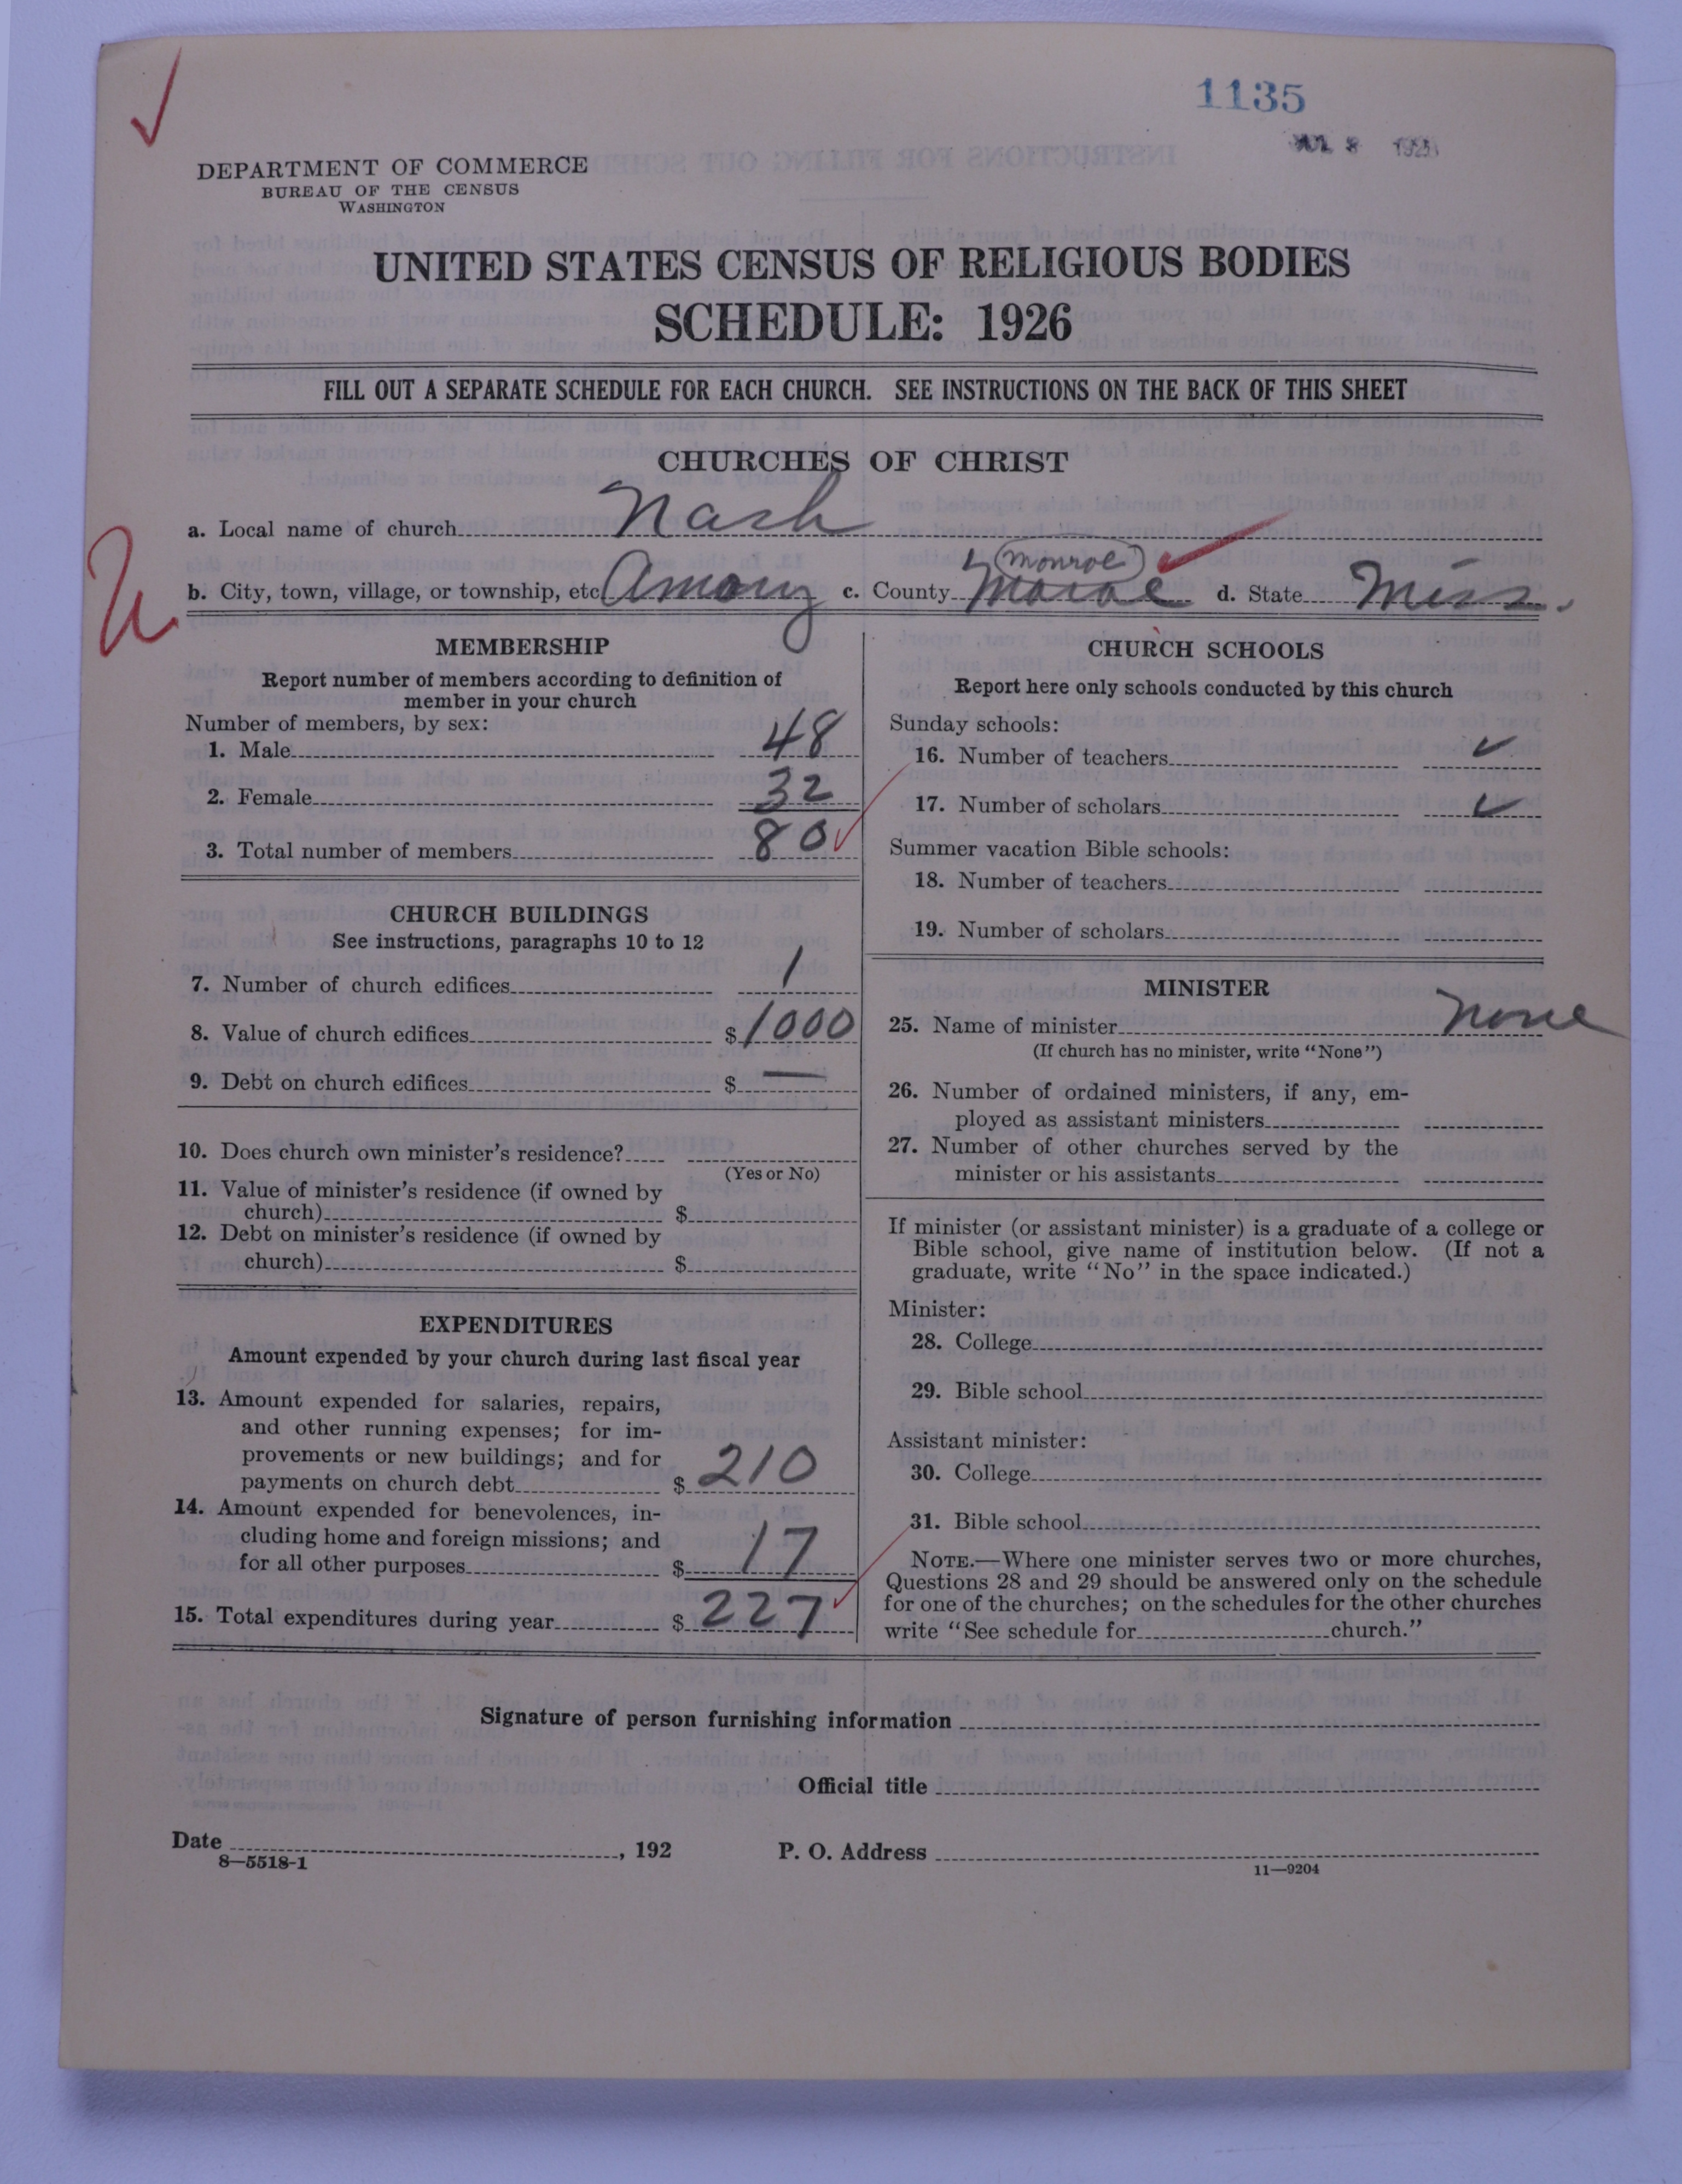 1135
JUL 8
DEPARTMENT OF COMMERCE
BUREAU OF THE CENSUS
WASHINGTON
UNITED STATES CENSUS OF RELIGIOUS BODIES
SCHEDULE: 1926
FILL OUT A SEPARATE SCHEDULE FOR EACH CHURCH. SEE INSTRUCTIONS ON THE BACK OF THIS SHEET
CHURCHES OF CHRIST
a. Local name of church Nash
(Monroe)
b. City, town, village, or township, etc. Amory c. County d. State Miss.
MEMBERSHIP
Report number of members according to definition of
member in your church
Number of members, by sex:
1. Male 48
2. Female 32
3. Total number of members 80
CHURCH BUILDINGS
See instructions, paragraphs 10 to 12
7. Number of church edifices 1
8. Value of church edifices $ 1000
9. Debt on church edifices $ —
10. Does church own minister's residence?
(Yes or No)
11. Value of minister's residence (if owned by
church) $
12. Debt on minister's residence (if owned by
church) $
EXPENDITURES
Amount expended by your church during last fiscal year
13. Amount expended for salaries, repairs,
and other running expenses; for im-
provements or new buildings; and for
payments on church debt $ 210
14. Amount expended for benevolences, in-
cluding home and foreign missions; and
for all other purposes $ 17
15. Total expenditures during year $ 227
CHURCH SCHOOLS
Report here only schools conducted by this church
Sunday schools:
16. Number of teachers ✓
17. Number of scholars ✓
Summer vacation Bible schools:
18. Number of teachers
19. Number of scholars
MINISTER
25. Name of minister None
(If church has no minister, write "None")
26. Number of ordained ministers, if any, em-
ployed as assistant ministers
27. Number of other churches served by the
minister or his assistants
If minister (or assistant minister) is a graduate of a college or
Bible school, give name of institution below. (If not a
graduate, write "No" in the space indicated.)
Minister:
28. College
29. Bible school
Assistant minister:
30. College
31. Bible school
NOTE.—Where one minister serves two or more churches,
Questions 28 and 29 should be answered only on the schedule
for one of the churches; on the schedules for the other churches
write "See schedule for church."
Signature of person furnishing information
Official title
Date , 192 P. O. Address
8—5518-1 11—9204